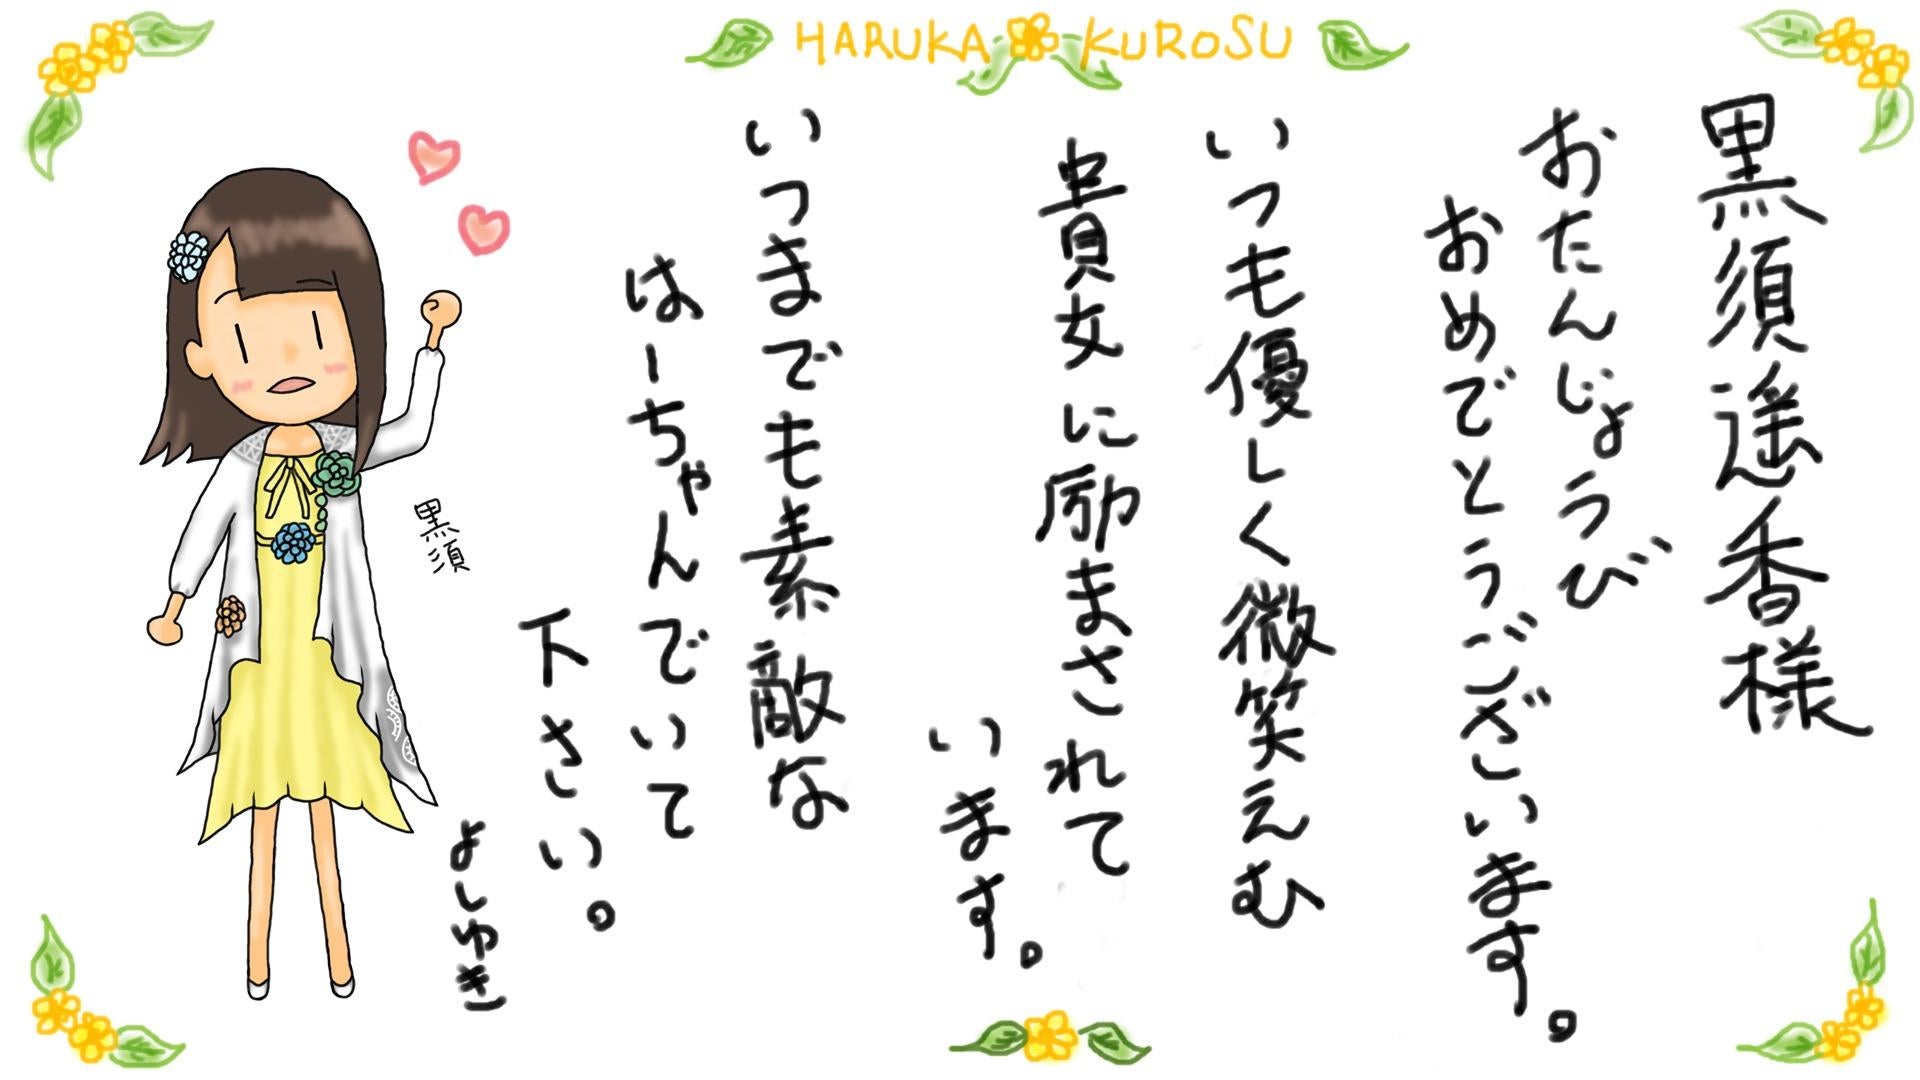 HARUKA KUROSU
黒須遥香様
おたんじょうび
おめでとうございます。
いつも優しく微笑えむ
貴女に励まされて
います。
いつまでも素敵な
はーちゃんでいて
下さい。
よしゆき
黒須